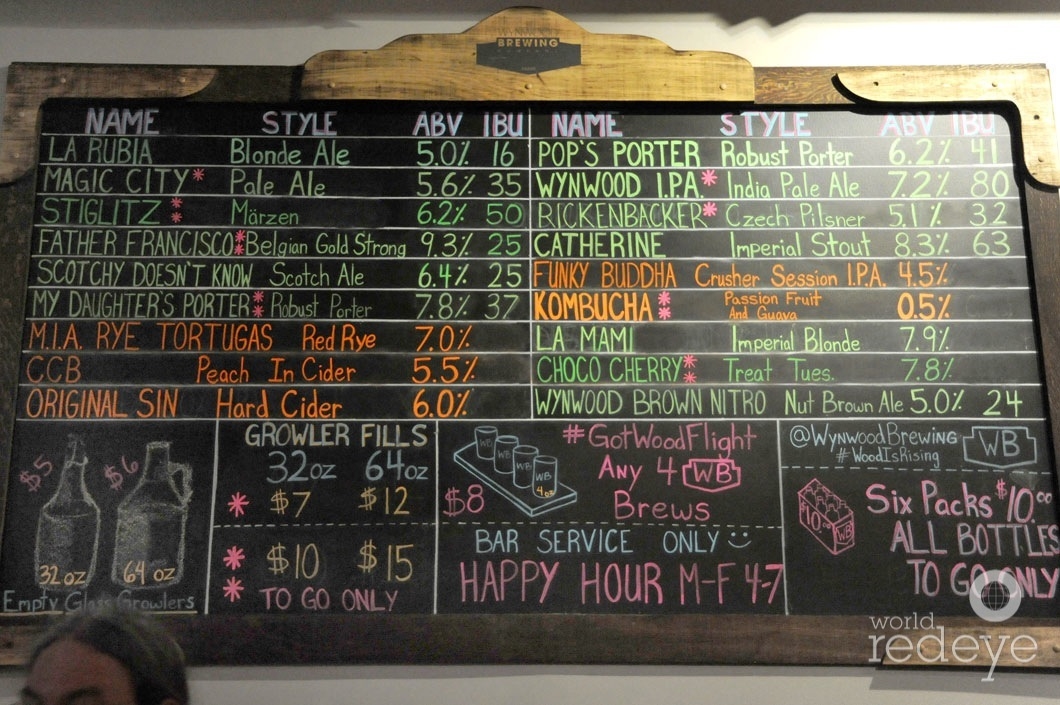 WYNWOOD
BREWING
COMPANY
NAME STYLE ABV IBU
LA RUBIA Blonde Ale 5.0% 16
MAGIC CITY* Pale Ale 5.6% 35
STIGLITZ ** Märzen 6.2% 50
FATHER FRANCISCO** Belgian Gold Strong 9.3% 25
SCOTCHY DOESN'T KNOW Scotch Ale 6.4% 25
MY DAUGHTER'S PORTER** Robust Porter 7.8% 37
M.I.A. RYE TORTUGAS Red Rye 7.0%
CCB Peach In Cider 5.5%
ORIGINAL SIN Hard Cider 6.0%
NAME STYLE ABV IBU
POP'S PORTER Robust Porter 6.2% 41
WYNWOOD I.P.A* India Pale Ale 7.2% 80
RICKENBACKER* Czech Pilsner 5.1% 32
CATHERINE Imperial Stout 8.3% 63
FUNKY BUDDHA Crusher Session I.P.A. 4.5%
KOMBUCHA ** Passion Fruit And Guava 0.5%
LA MAMI Imperial Blonde 7.9%
CHOCO CHERRY** Treat Tues. 7.8%
WYNWOOD BROWN NITRO Nut Brown Ale 5.0% 24
$5 $6
32 oz 64 oz
Empty Glass Growlers
GROWLER FILLS
32oz 64oz
* $7 $12
* $10 $15
* TO GO ONLY
WB WB WB WB
4oz
$8
#GotWoodFlight
Any 4 WB
Brews
BAR SERVICE ONLY
HAPPY HOUR M-F 4-7
@WynwoodBrewing
#WoodIsRising
WB
$10.00
WB
Six Packs $10.00
ALL BOTTLES
TO GO ONLY
world
redeye